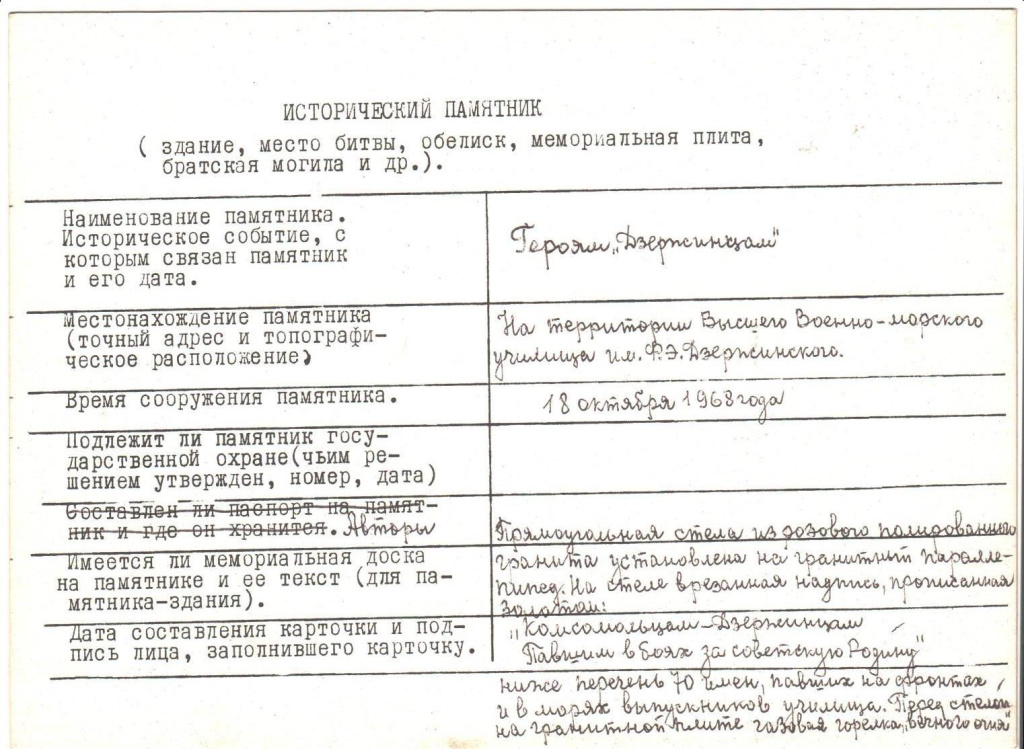 ИСТОРИЧЕСКИЙ ПАМЯТНИК
( здание, место битвы, обелиск, мемориальная плита,
братская могила и др.).
Наименование памятника.
Историческое событие, с
которым связан памятник
и его дата.
Героям „Дзержинцам"
Местонахождение памятника
(точный адрес и топографи-
ческое расположение)
На территории Высшего Военно-морского
училища им. Ф.Э. Дзержинского.
Время сооружения памятника.
18 октября 1968 года
Подлежит ли памятник госу-
дарственной охране(чьим ре-
шением утвержден, номер, дата)
Составлен ли паспорт на памят-
ник и где он хранится. Авторы
Имеется ли мемориальная доска
на памятнике и ее текст (для па-
мятника-здания).
Прямоугольная стела из розового полированного
гранита установлена на гранитный паралле-
пипед. На стеле врезанная надпись, прописанная
золотом:
Дата составления карточки и под-
пись лица, заполнившего карточку.
„Комсомольцам-Дзержинцам
Павшим в боях за советскую Родину"
ниже перечень 70 имен, павших на фронтах
и в морях выпускников училища. Перед стелой
на гранитной плите газовая горелка „вечного огня"